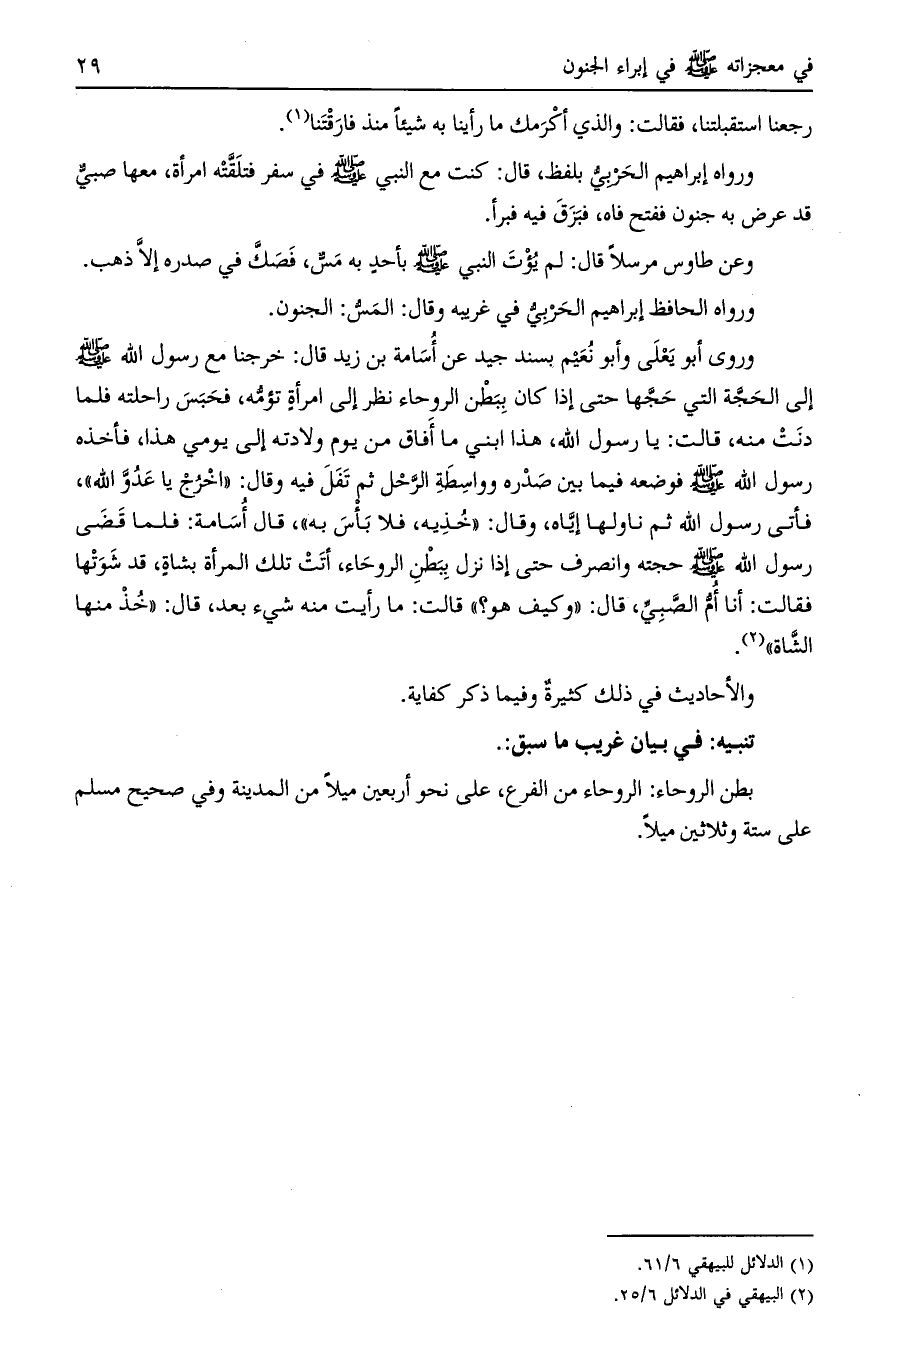 في معجزاته ﷺ في إبراء الجنون ٢٩
رجعنا استقبلتنا، فقالت: والذي أكْرَمك ما رأينا به شيئاً منذ فارَقْتَنا(١).
ورواه إبراهيم الحَرْبِيُّ بلفظ، قال: كنت مع النبي ﷺ في سفر فتلَقَّتْه امرأة، معها صبيٌّ
قد عرض به جنون ففتح فاه، فبَزَقَ فيه فبرأ.
وعن طاوس مرسلاً قال: لم يُؤْتَ النبي ﷺ بأحدٍ به مَسٌّ، فَصَكَّ في صدره إلاَّ ذهب.
ورواه الحافظ إبراهيم الحَرْبِيُّ في غريبه وقال: المَسُّ: الجنون.
وروى أبو يَعْلَى وأبو نُعَيْم بسند جيد عن أُسَامة بن زيد قال: خرجنا مع رسول الله ﷺ
إلى الحَجَّة التي حَجَّها حتى إذا كان بِبَطْن الروحاء نظر إلى امرأةٍ تؤمُّه، فحَبَسَ راحلته فلما
دنَتْ منه، قالت: يا رسول الله، هذا ابني ما أَفاق من يوم ولادته إلى يومي هذا، فأخذه
رسول الله ﷺ فوضعه فيما بين صَدْره وواسِطَةِ الرَّحْل ثم تَفَلَ فيه وقال: «اخْرُجْ يا عَدُوَّ الله»،
فأتى رسول الله ثم ناولها إيَّاه، وقال: «خُذِيه، فلا بَأْسَ به»، قال أُسَامة: فلما قَضَى
رسول الله ﷺ حجته وانصرف حتى إذا نزل بِبَطْنِ الروحَاء، أتَتْ تلك المرأة بشاةٍ، قد شَوَتْها
فقالت: أنا أُمُّ الصَّبِيِّ، قال: «وكيف هو؟» قالت: ما رأيت منه شيء بعد، قال: «خُذْ منها
الشَّاة»(٢).
والأحاديث في ذلك كثيرةٌ وفيما ذكر كفاية.
تنبيه: في بيان غريب ما سبق:.
بطن الروحاء: الروحاء من الفرع، على نحو أربعين ميلاً من المدينة وفي صحيح مسلم
على ستة وثلاثين ميلاً.
(١) الدلائل للبيهقي ٦١/٦.
(٢) البيهقي في الدلائل ٢٥/٦.